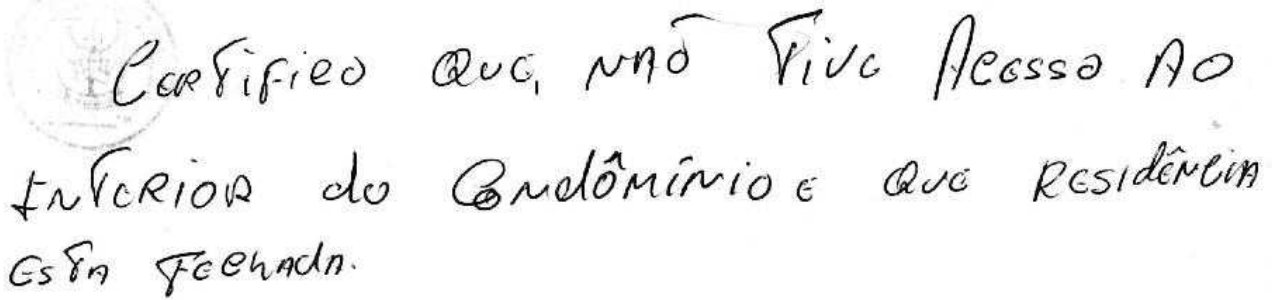 Certifico que, não tive acesso ao
interior do condômínio e que residência
esta fechada.